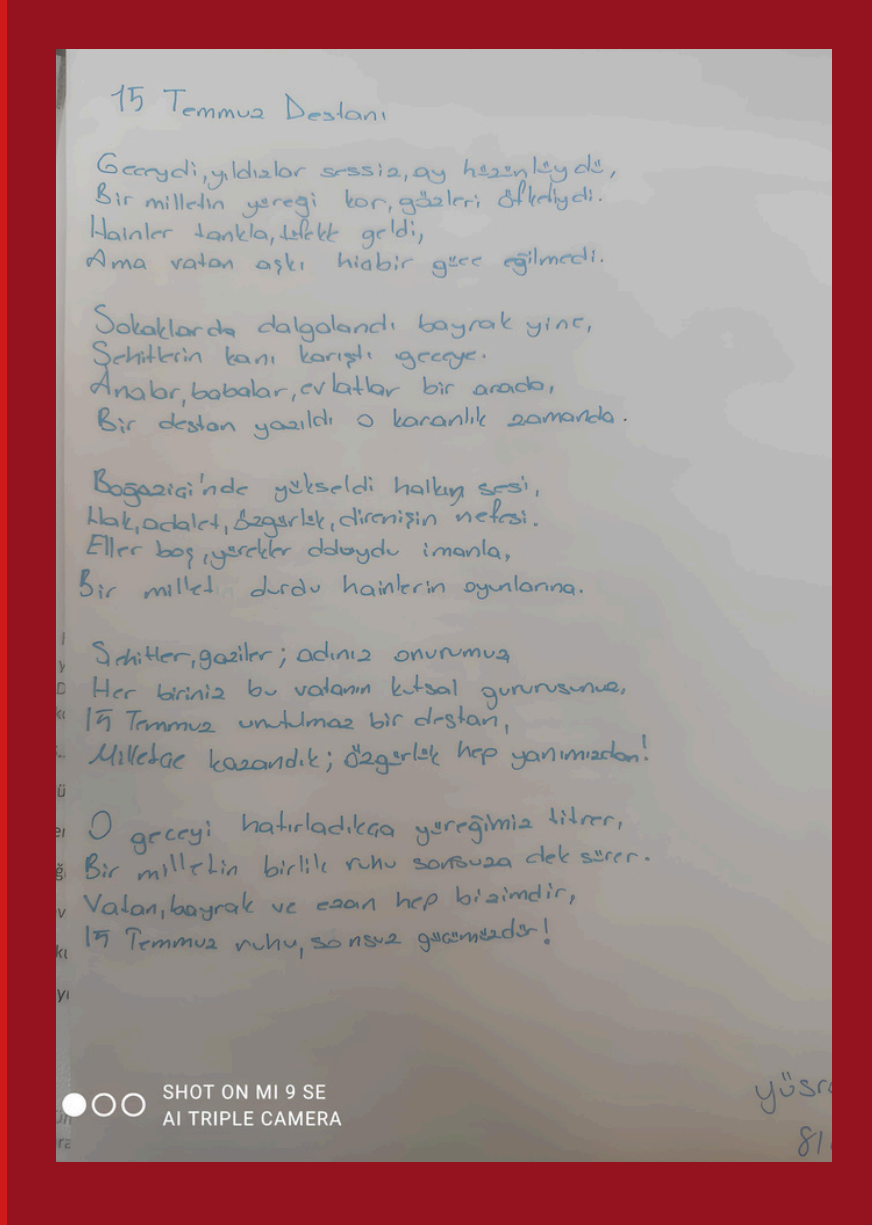 15 Temmuz Destanı
Geceydi, yıldızlar sessiz, ay hüzünlüydü,
Bir milletin yüreği kor, gözleri öfkeliydi.
Hainler tankla, tüfekle geldi,
Ama vatan aşkı hiçbir güce eğilmedi.
Sokaklarda dalgalandı bayrak yine,
Şehitlerin kanı karıştı geceye.
Analar, babalar, evlatlar bir arada,
Bir destan yazıldı o karanlık zamanda.
Boğaziçi'nde yükseldi halkın sesi,
Hak, adalet, özgürlük, direnişin nefesi.
Eller boş, yürekler doluydu imanla,
Bir millet durdu hainlerin oyunlarına.
Şehitler, gaziler; adınız onurumuz
Her biriniz bu vatanın kutsal gururusunuz,
15 Temmuz unutulmaz bir destan,
Milletçe kazandık; özgürlük hep yanımızdan!
O geceyi hatırladıkça yüreğimiz titrer,
Bir milletin birlik ruhu sonsuza dek sürer.
Vatan, bayrak ve ezan hep bizimdir,
15 Temmuz ruhu, sonsuz gücümüzdür!
SHOT ON MI 9 SE
AI TRIPLE CAMERA